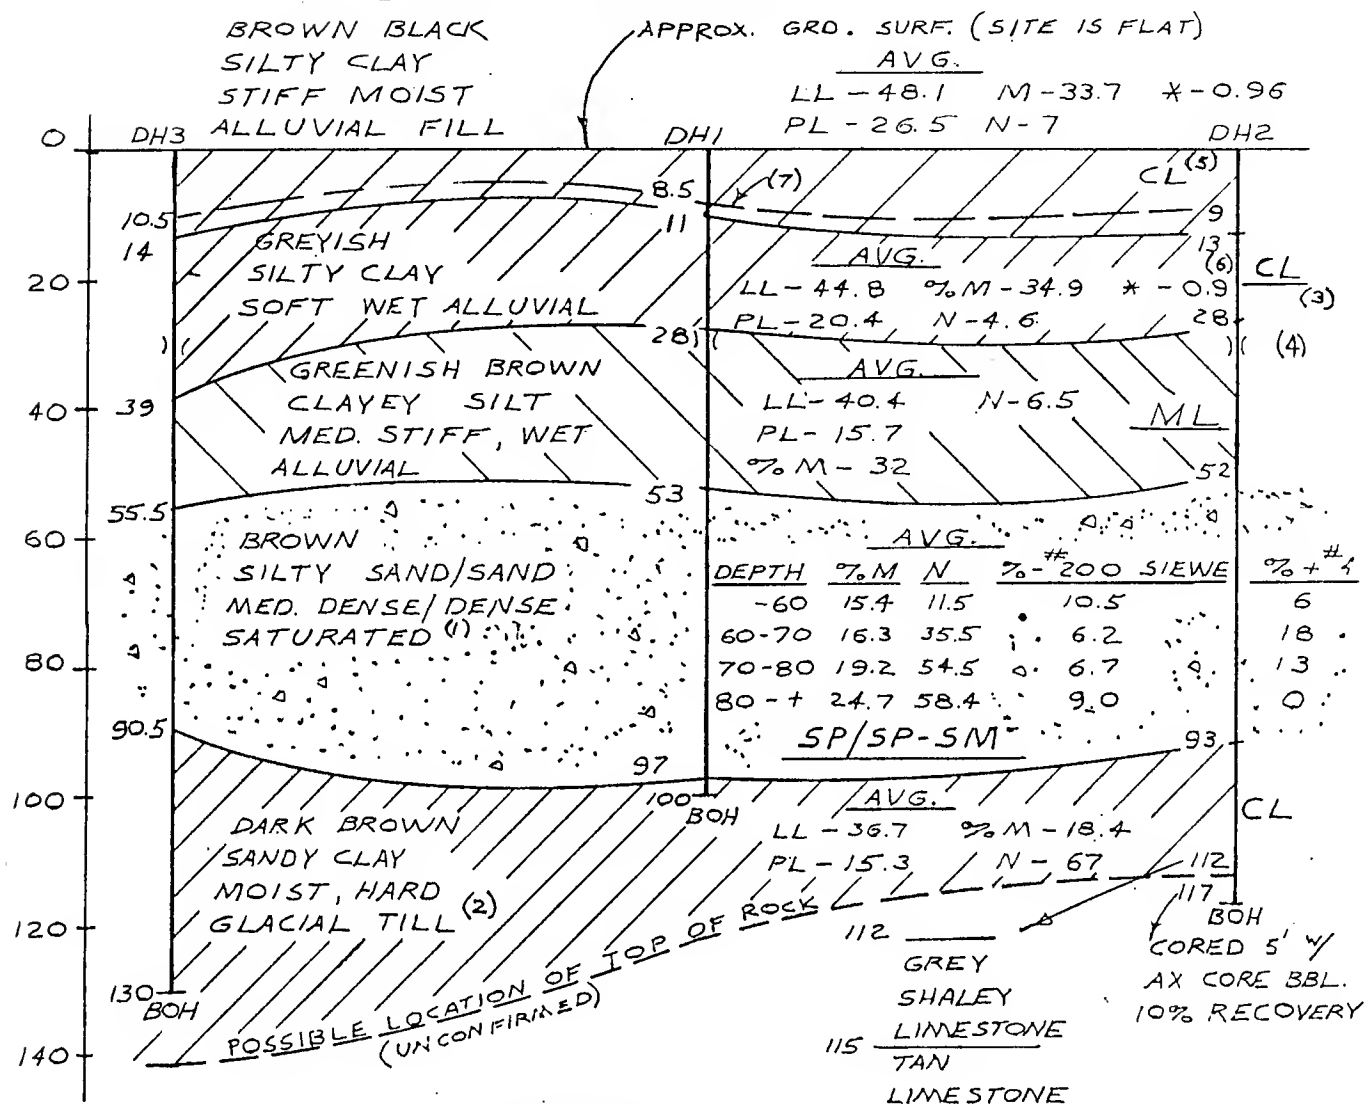 BROWN BLACK
SILTY CLAY
STIFF MOIST
ALLUVIAL FILL
APPROX. GRD. SURF. (SITE IS FLAT)
AVG.
LL-48.1 M-33.7 *-0.96
PL-26.5 N-7
0 DH3 DH1 DH2
CL (5)
8.5 (7)
10.5 9
14 11 13
GREYISH
SILTY CLAY
SOFT WET ALLUVIAL
AVG. (6)
LL-44.8 %M-34.9 *-0.9
PL-20.4 N-4.6
20
CL
(3)
28 28 (4)
GREENISH BROWN
CLAYEY SILT
MED. STIFF, WET
ALLUVIAL
AVG.
LL-40.4 N-6.5
PL-15.7
%M-32
ML
40 39
55.5 53 52
60
BROWN
SILTY SAND/SAND
MED. DENSE/DENSE
SATURATED (1)
AVG.
DEPTH %M N %-#200 SIEWE %+#4
-60 15.4 11.5 10.5 6
60-70 16.3 35.5 6.2 18
70-80 19.2 54.5 6.7 13
80-+ 24.7 58.4 9.0 0
SP/SP-SM
80
90.5 97 93
100 100
BOH
DARK BROWN
SANDY CLAY
MOIST, HARD
GLACIAL TILL (2)
AVG.
LL-36.7 %M-18.4
PL-15.3 N-67
CL
112
117
BOH
120
130
BOH
140
POSSIBLE LOCATION OF TOP OF ROCK
(UNCONFIRMED)
112
GREY
SHALEY
LIMESTONE
115
TAN
LIMESTONE
CORED 5' w/
AX CORE BBL.
10% RECOVERY